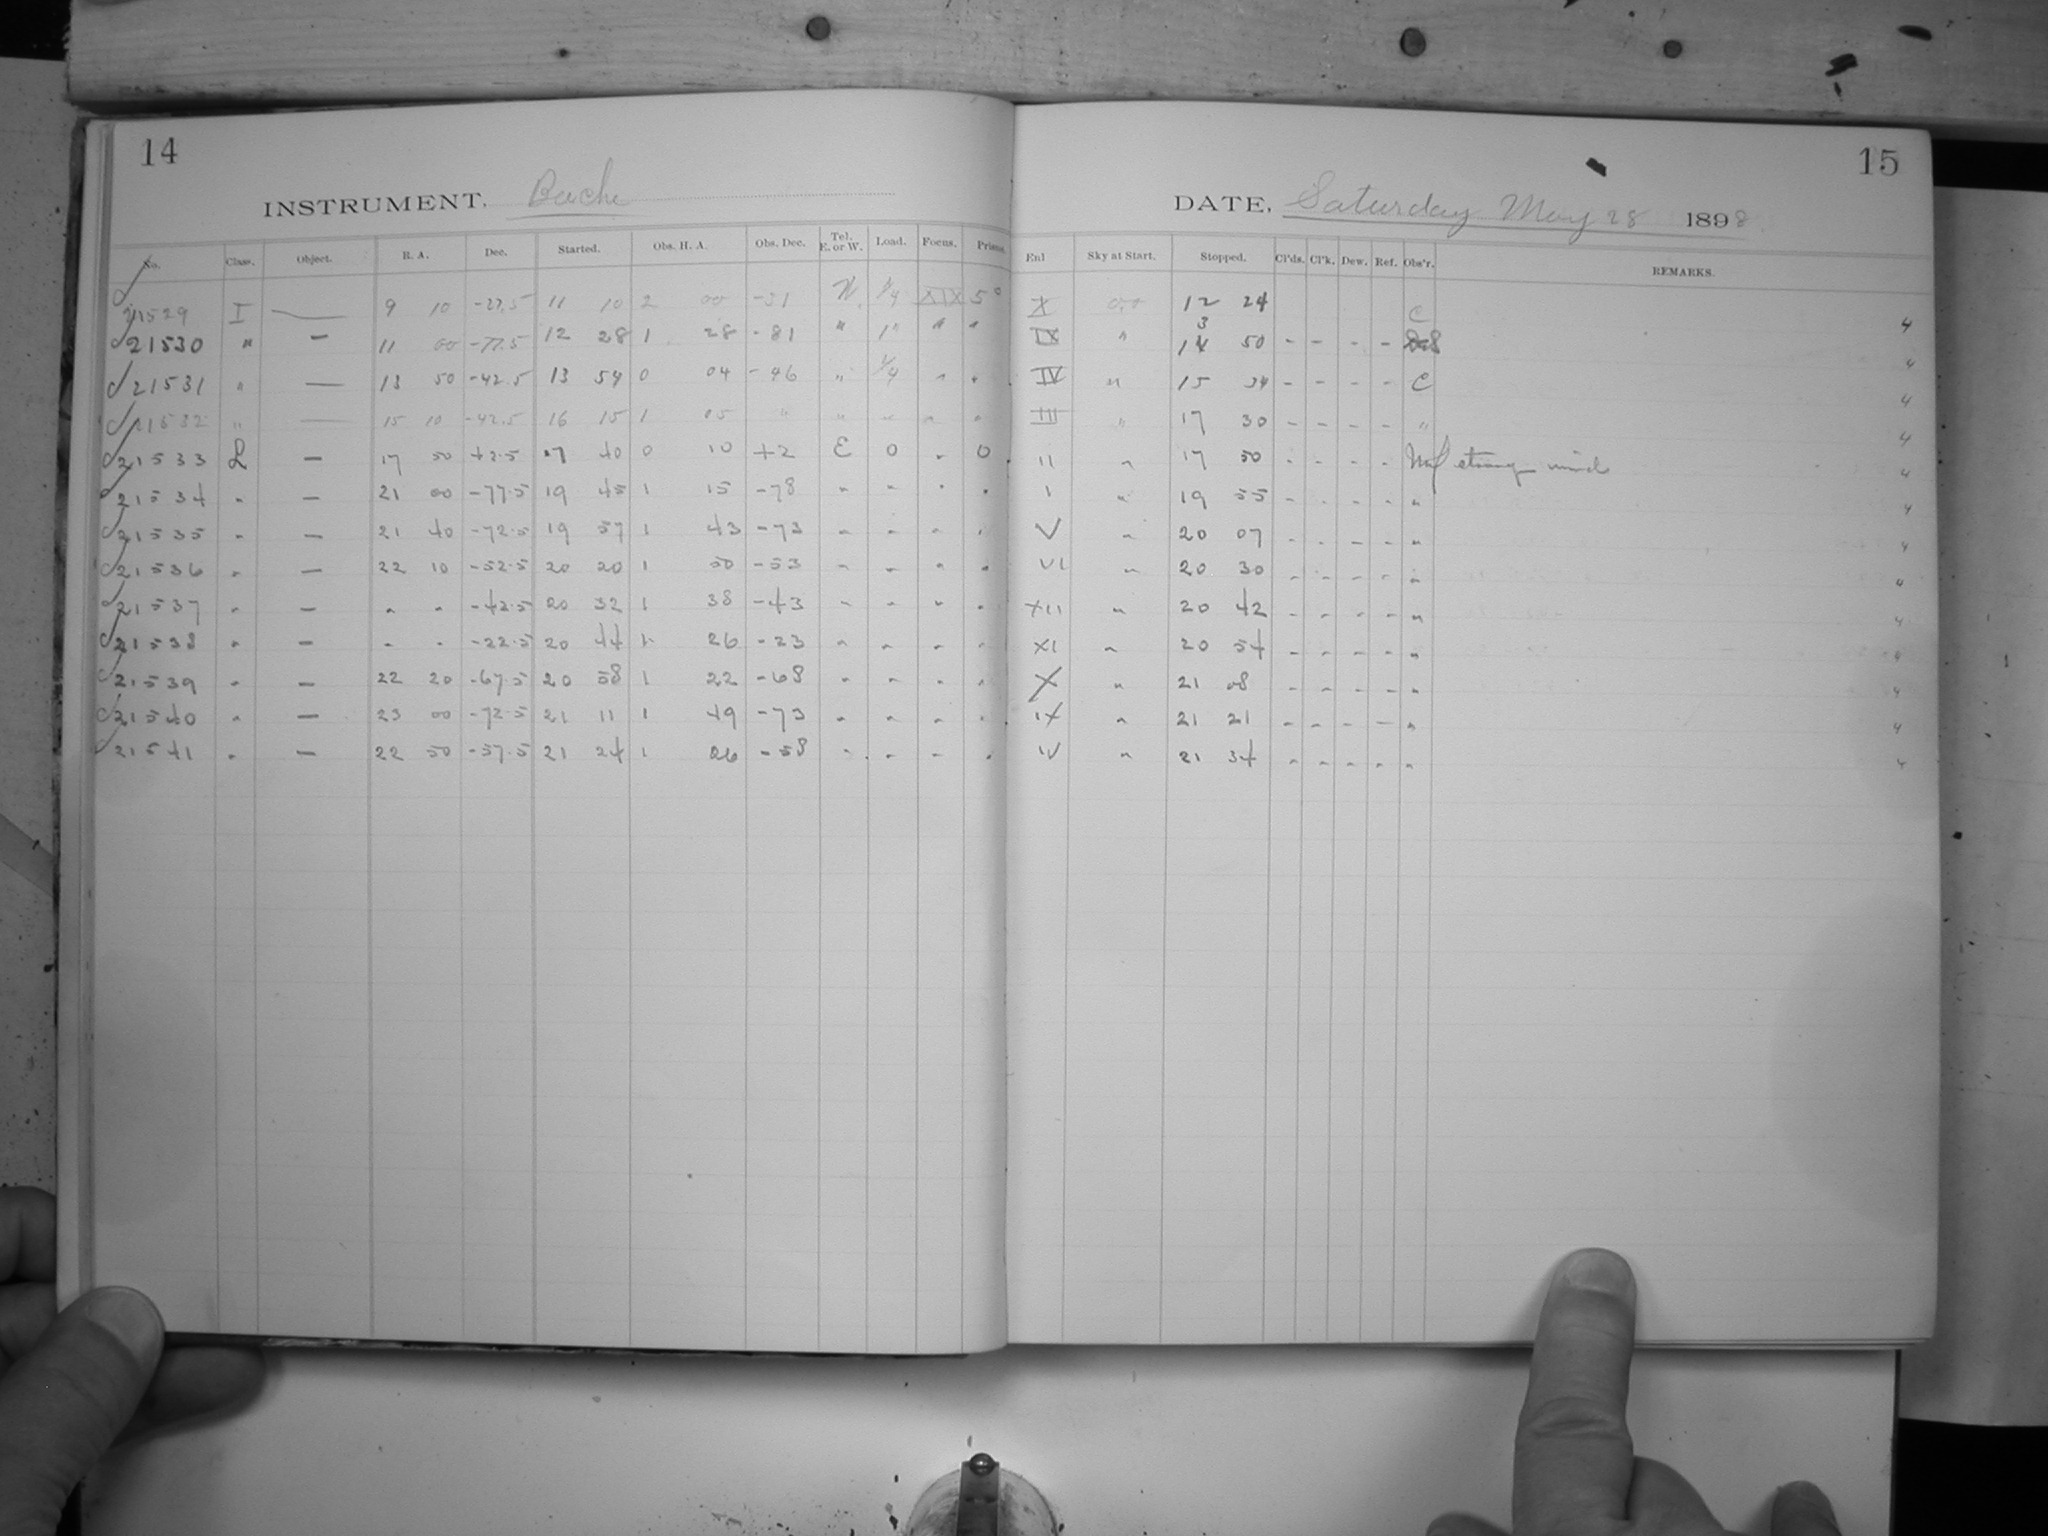 14
INSTRUMENT. Bache
No. Class. Object. R. A. Dec. Started. Obs. H. A. Obs. Dec. Tel. E. or W. Load. Focus. Prisms.
21529 I — 9 10 -27.5 11 10 2 00 -31 W 1/4 XIX 5°
21530 " — 11 00 -77.5 12 28 1 28 -81 " 1" " "
21531 " — 13 50 -42.5 13 54 0 04 -46 " 1/4 " "
21532 " — 15 10 -42.5 16 15 1 05 " " " " "
21533 L — 17 50 +2.5 17 40 0 10 +2 E 0 " 0
21534 " — 21 00 -77.5 19 45 1 15 -78 " " " "
21535 " — 21 40 -72.5 19 57 1 43 -73 " " " "
21536 " — 22 10 -52.5 20 20 1 50 -53 " " " "
21537 " — " " -42.5 20 32 1 38 -43 " " " "
21538 " — " " -22.5 20 44 1 26 -23 " " " "
21539 " — 22 20 -67.5 20 58 1 22 -68 " " " "
21540 " — 23 00 -72.5 21 11 1 49 -73 " " " "
21541 " — 22 50 -57.5 21 24 1 26 -58 " " " "
15
DATE, Saturday May 28 1898
Enl Sky at Start. Stopped. Cl'ds. Cl'k. Dew. Ref. Obs'r. REMARKS.
X 12 24 C 4
IX " 13 50 - - - - 4
IV " 15 34 - - - - C 4
III " 17 30 - - - - " 4
II " 17 50 - - - - strong wind 4
I " 19 55 - - - - " 4
V " 20 07 - - - - " 4
VI " 20 30 - - - - " 4
XII " 20 42 - - - - " 4
XI " 20 54 - - - - " 4
X " 21 08 - - - - " 4
IX " 21 21 - - - - " 4
IV " 21 34 - - - - " 4